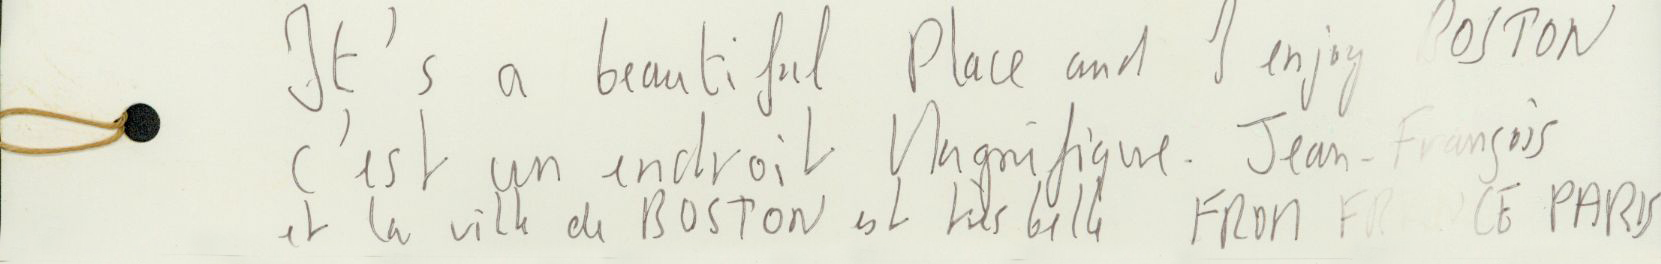 It's a beautiful Place and I enjoy BOSTON
c'est un endroit Magnifique. Jean-François
et la ville de BOSTON est très belle FROM FRANCE PARIS